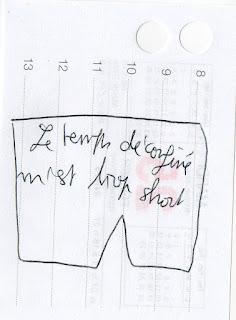 13 12 11 10 9 8
Le temps déconfiné
m'est trop short